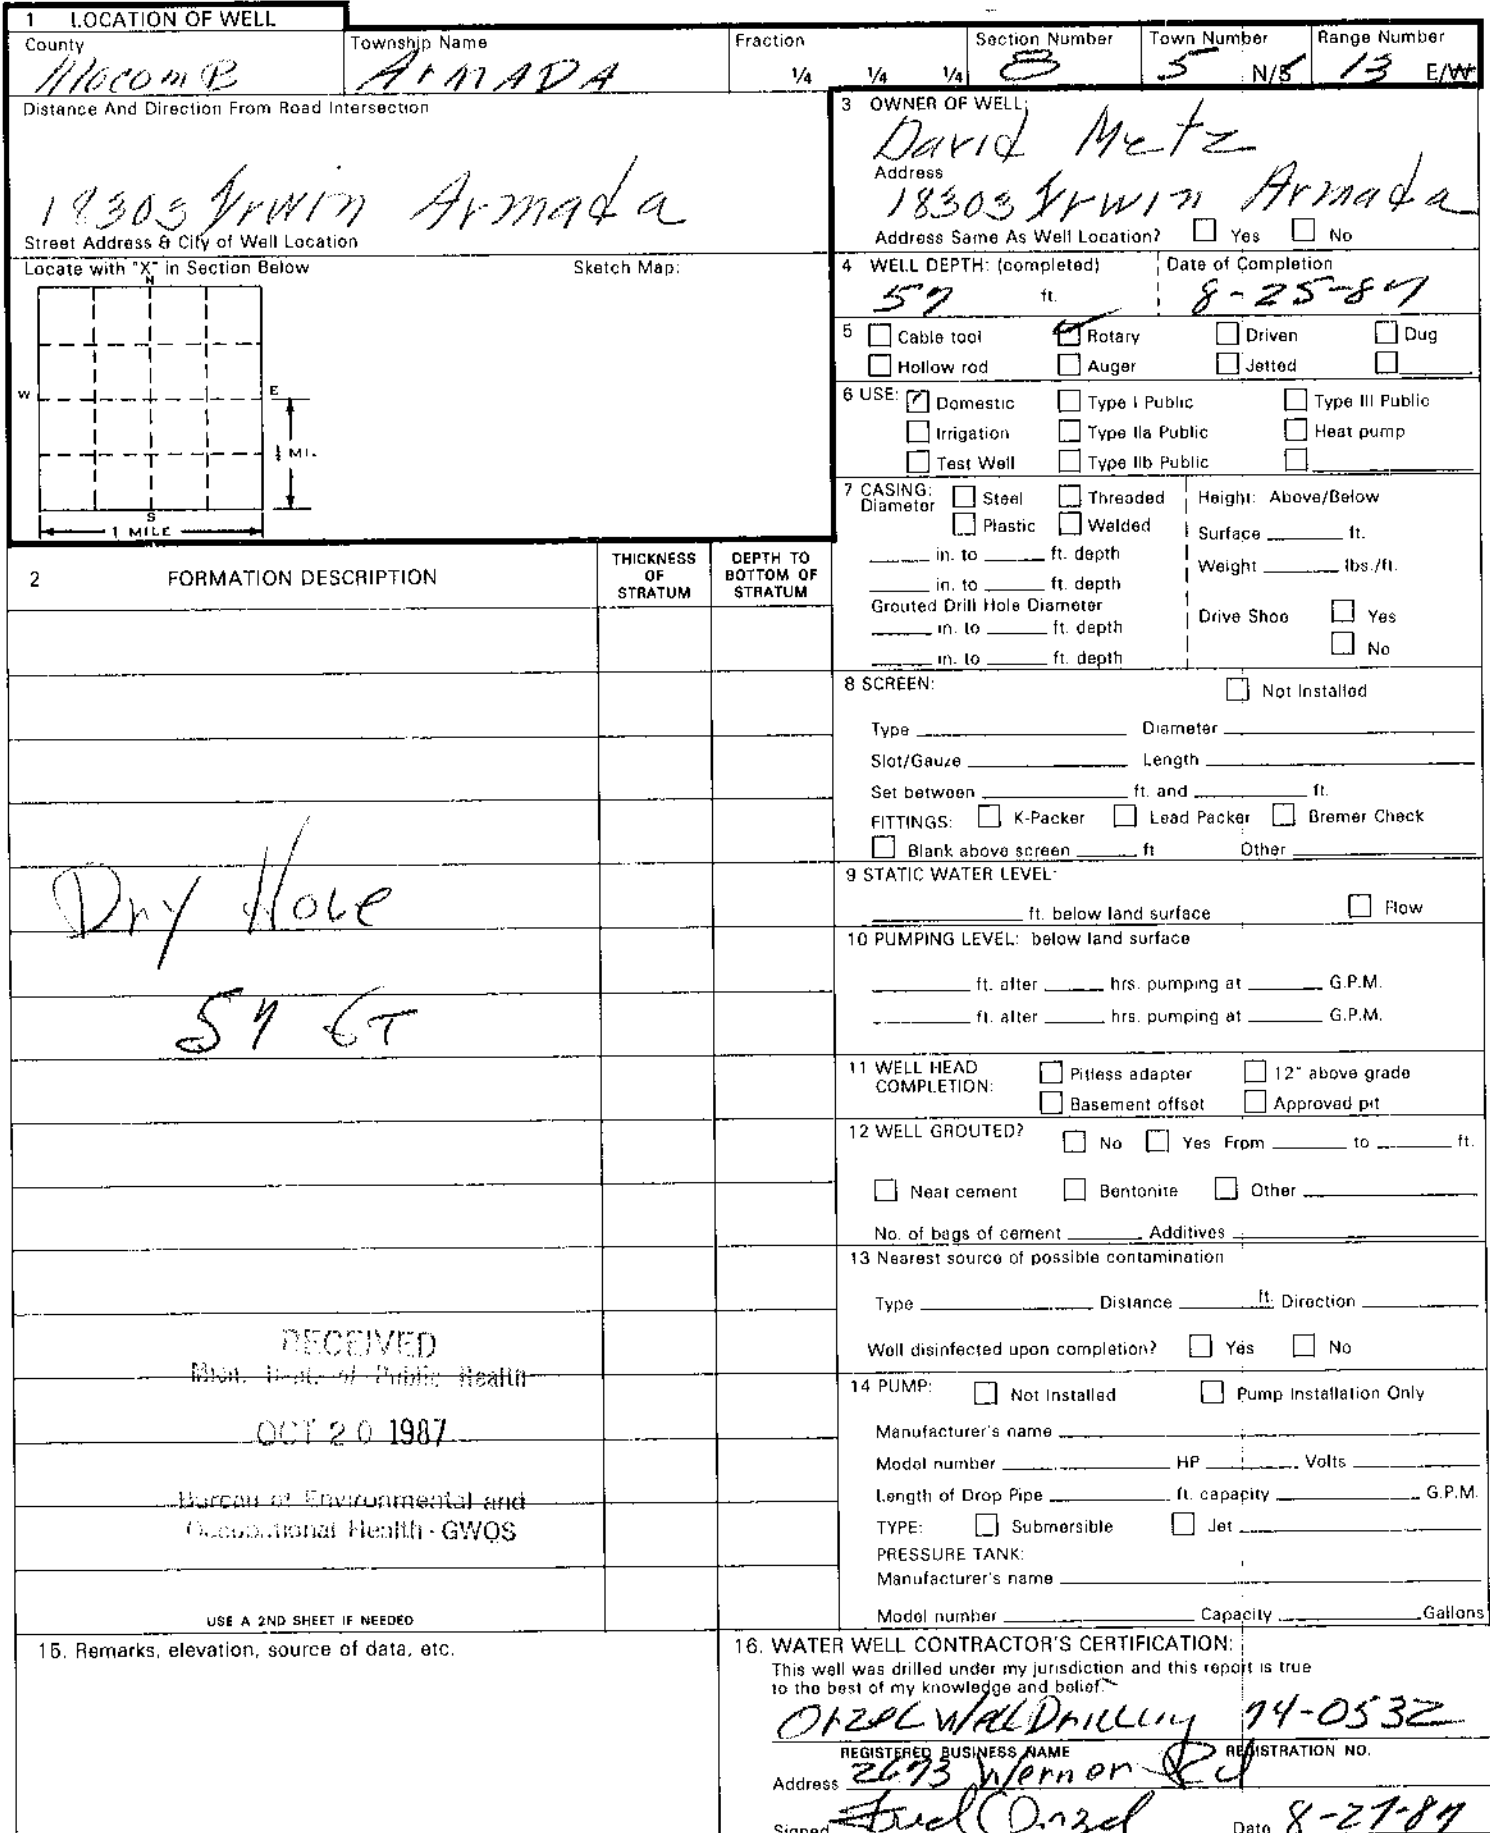 1 LOCATION OF WELL
County Township Name Fraction Section Number Town Number Range Number
MacomB ArMADA 1/4 1/4 1/4 8 5 N/S 13 E/W
Distance And Direction From Road Intersection
18303 Irwin Armada
Street Address & City of Well Location
Locate with "X" in Section Below Sketch Map:
N
W E
½ MI.
S
1 MILE
3 OWNER OF WELL:
David Metz
Address
18303 Irwin Armada
Address Same As Well Location? Yes No
4 WELL DEPTH: (completed) Date of Completion
57 ft. 8-25-87
5 Cable tool Rotary Driven Dug
Hollow rod Auger Jetted
6 USE: Domestic Type I Public Type III Public
Irrigation Type IIa Public Heat pump
Test Well Type IIb Public
7 CASING: Steel Threaded Height: Above/Below
Diameter Plastic Welded
Surface ft.
in. to ft. depth
Weight lbs./ft.
in. to ft. depth
Grouted Drill Hole Diameter
in. to ft. depth
Drive Shoe Yes
No
in. to ft. depth
8 SCREEN: Not Installed
Type Diameter
Slot/Gauze Length
Set between ft. and ft.
FITTINGS: K-Packer Lead Packer Bremer Check
Blank above screen ft Other
9 STATIC WATER LEVEL:
ft. below land surface Flow
10 PUMPING LEVEL: below land surface
ft. after hrs. pumping at G.P.M.
ft. after hrs. pumping at G.P.M.
11 WELL HEAD COMPLETION: Pitless adapter 12" above grade
Basement offset Approved pit
12 WELL GROUTED? No Yes From to ft.
Neat cement Bentonite Other
No. of bags of cement Additives
13 Nearest source of possible contamination
Type Distance ft. Direction
Well disinfected upon completion? Yes No
14 PUMP: Not Installed Pump Installation Only
Manufacturer's name
Model number HP Volts
Length of Drop Pipe ft. capacity G.P.M.
TYPE: Submersible Jet
PRESSURE TANK:
Manufacturer's name
Model number Capacity Gallons
2 FORMATION DESCRIPTION THICKNESS OF STRATUM DEPTH TO BOTTOM OF STRATUM
Dry Hole
57 FT
RECEIVED
Mich. Dept. of Public Health
OCT 20 1987
Bureau of Environmental and
Occupational Health - GWQS
USE A 2ND SHEET IF NEEDED
15. Remarks, elevation, source of data, etc.
16. WATER WELL CONTRACTOR'S CERTIFICATION:
This well was drilled under my jurisdiction and this report is true
to the best of my knowledge and belief.
Orzel Well Drilling 74-0532
REGISTERED BUSINESS NAME REGISTRATION NO.
Address 2673 Wernor Rd
Signed Fred Orzel Date 8-27-87